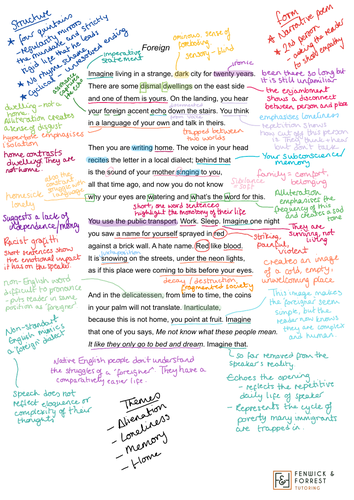 Structure
* four quatrains
- regularity mirrors
the mundane and strictly
rigid life that he leads
* No rhyme scheme
* Cyclical - unresolved ending
Form
* Narrative poem
* 2nd person
- asking the reader
to show empathy
Foreign
imperative
statement
ominous sense of
foreboding
sensory - blind
ironic
Imagine living in a strange, dark city for twenty years.
There are some dismal dwellings on the east side
and one of them is yours. On the landing, you hear
your foreign accent echo down the stairs. You think
in a language of your own and talk in theirs.
been there so long but
it is still unfamiliar
the enjambment
shows a disconnect
between person and place
dwelling - not a
home
Alliteration creates
a sense of disgust
hyperbole emphasises
isolation
home contrasts
dwelling. They are
not home.
trapped between
two worlds
emphasises loneliness
repetition shows
Then you are writing home. The voice in your head
recites the letter in a local dialect; behind that
is the sound of your mother singing to you,
all that time ago, and now you do not know
why your eyes are watering and what's the word for this.
Your subconscious/
memory
family = comfort,
belonging
Sibilance
homesick
lonely
Alliteration
emphasises the
frequency of this
and creates a sad
tone
short, one word sentences
highlight the monotony of their life
You use the public transport. Work. Sleep. Imagine one night
you saw a name for yourself sprayed in red
against a brick wall. A hate name. Red like blood.
It is snowing on the streets, under the neon lights,
as if this place were coming to bits before your eyes.
They are
surviving, not
living
Suggests a lack of
independence/money
Racist graffiti
Short sentences show
the emotional impact
it has on the speaker
striking,
painful,
violent
juxtaposition
creates an image
of a cold, empty,
unwelcoming place
decay / destruction
fragmented society
non-English word
difficult to pronounce
- puts reader in same
position as 'foreigner'
And in the delicatessen, from time to time, the coins
in your palm will not translate. Inarticulate,
because this is not home, you point at fruit. Imagine
that one of you says, Me not know what these people mean.
It like they only go to bed and dream. Imagine that.
This image makes
the foreigner seem
simple, but the
reader now knows
they are complex
and human.
Non-standard
English mimics
a 'foreign' dialect
Speech does not
reflect eloquence or
complexity of their
thoughts
Native English people don't understand
the struggles of a "foreigner". They have a
comparatively easier life.
so far removed from the
speaker's reality
Echoes the opening
- reflects the repetitive
daily life of speaker
- Represents the cycle of
poverty many immigrants
are trapped in.
Themes
- Alienation
- Loneliness
- Memory
- Home
F&F
FENWICK &
FORREST
TUTORING